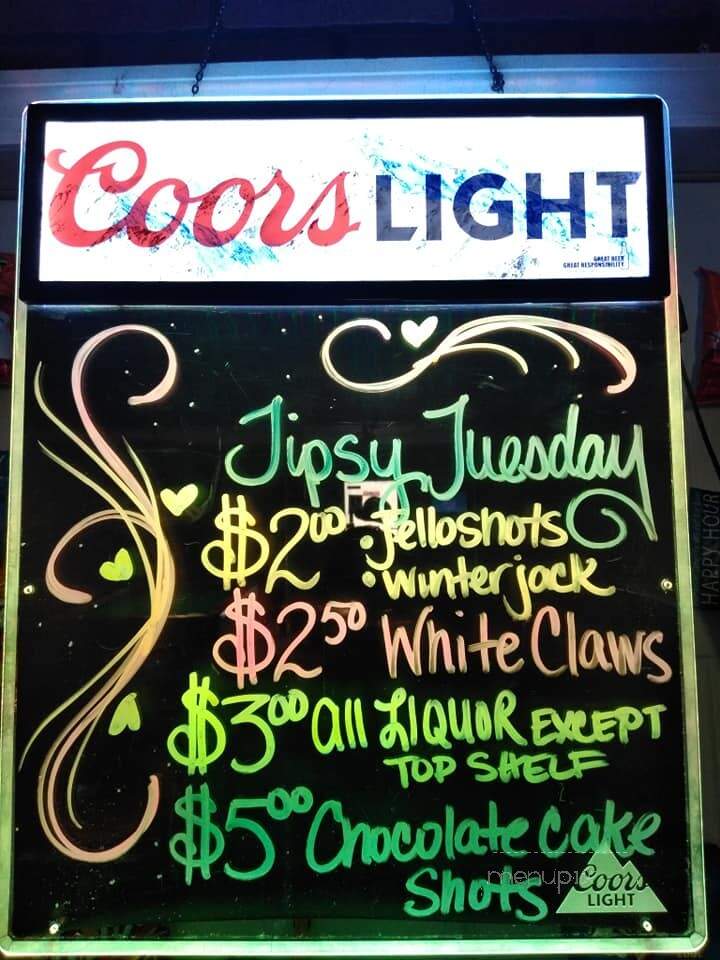 Coors LIGHT
GREAT BEER
GREAT RESPONSIBILITY
Tipsy Tuesday
$2.00 • Jelloshots
• Winterjack
$2.50 White Claws
$3.00 all LIQUOR EXCEPT
TOP SHELF
$5.00 Chocolate Cake
Shots
menupix
Coors
LIGHT
HAPPY HOUR